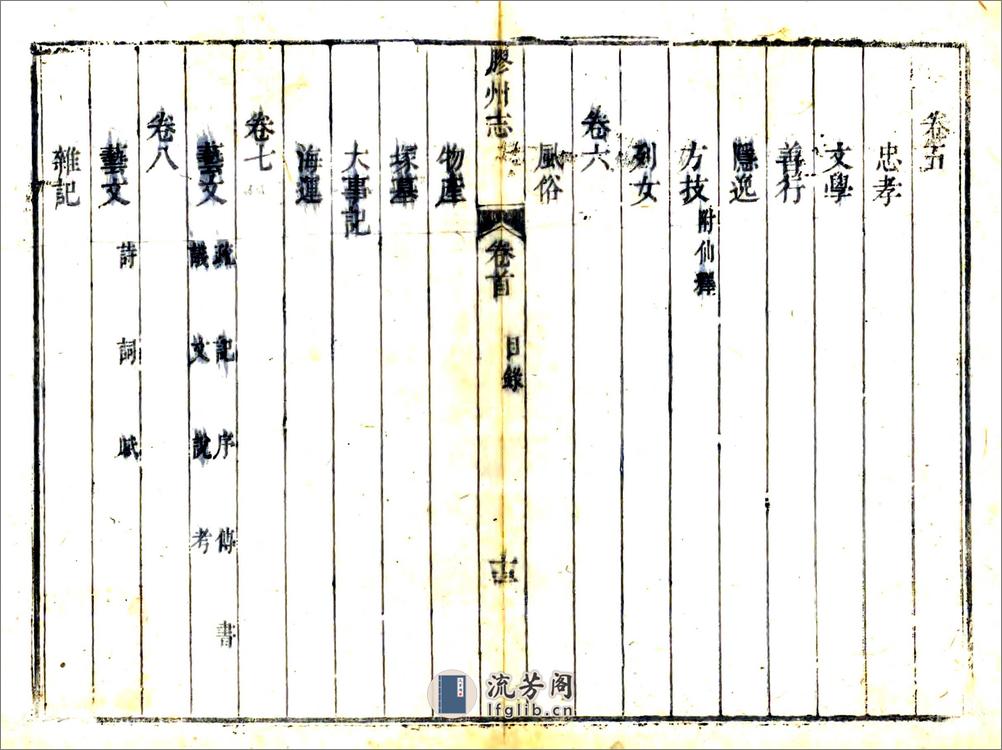 卷五
忠孝
文學
善行
隱逸
方技 附仙釋
列女
卷六
風俗
膠州志 卷首 目錄
物產
塚墓
大事記
海運
卷七
藝文 疏 記 序 傳 書
議 文 說 考
卷八
藝文 詩 詞 賦
雜記
流芳阁
lfglib.cn